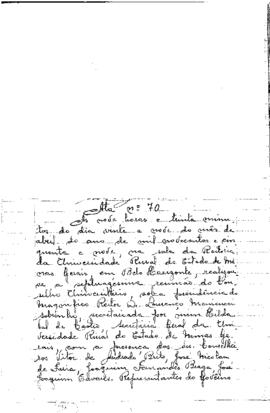 Ata nº 70
Às nove horas e trinta minu
tos do dia vinte e nove do mês de
abril do ano de mil novecentos e cin
quenta e nove na sala da Reitoria
da Universidade Rural do Estado de Mi
nas Gerais, em Belo Horizonte, realizou
se a septuagésima reunião do Con
selho Universitário, sob a presidência do
Magnífico Reitor Lourenço Menicucci
Sobrinho, secretariada por mim
de Castro Secretária Geral da Uni
versidade Rural do Estado de Minas Ge
rais com a presença dos srs. Conselhei
ros de Andrade Brito, José
de Faria, Joaquim Fernandes Braga, José
Joaquim Representantes do Governo